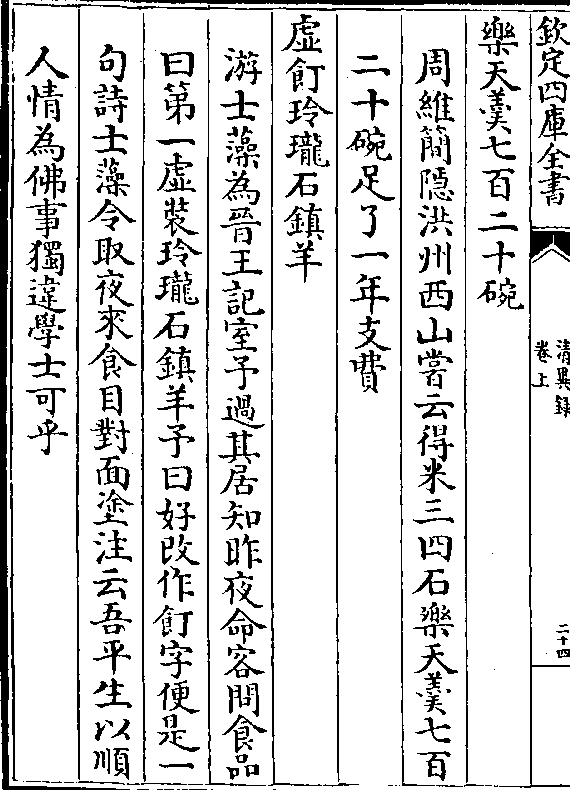 欽定四庫全書
清異錄
卷上
二十四
樂天羹七百二十碗
周維簡隠洪州西山嘗云得米三四石樂天羹七百
二十碗足了一年支費
虛飣玲瓏石鎮羊
游士藻為晉王記室予過其居知昨夜命客問食品
曰第一虛裝玲瓏石鎮羊予曰好改作飣字便是一
句詩士藻令取夜來食目對面塗注云吾平生以順
人情為佛事獨違學士可乎